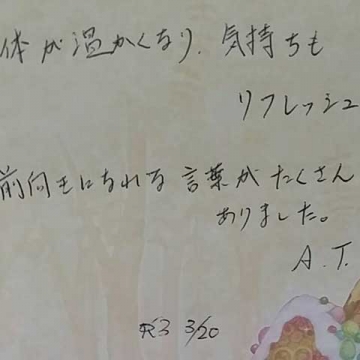 体が温かくなり、気持ちも
リフレッシュ
前向きになれる言葉がたくさん
ありました。
A.T.
R3 3/20